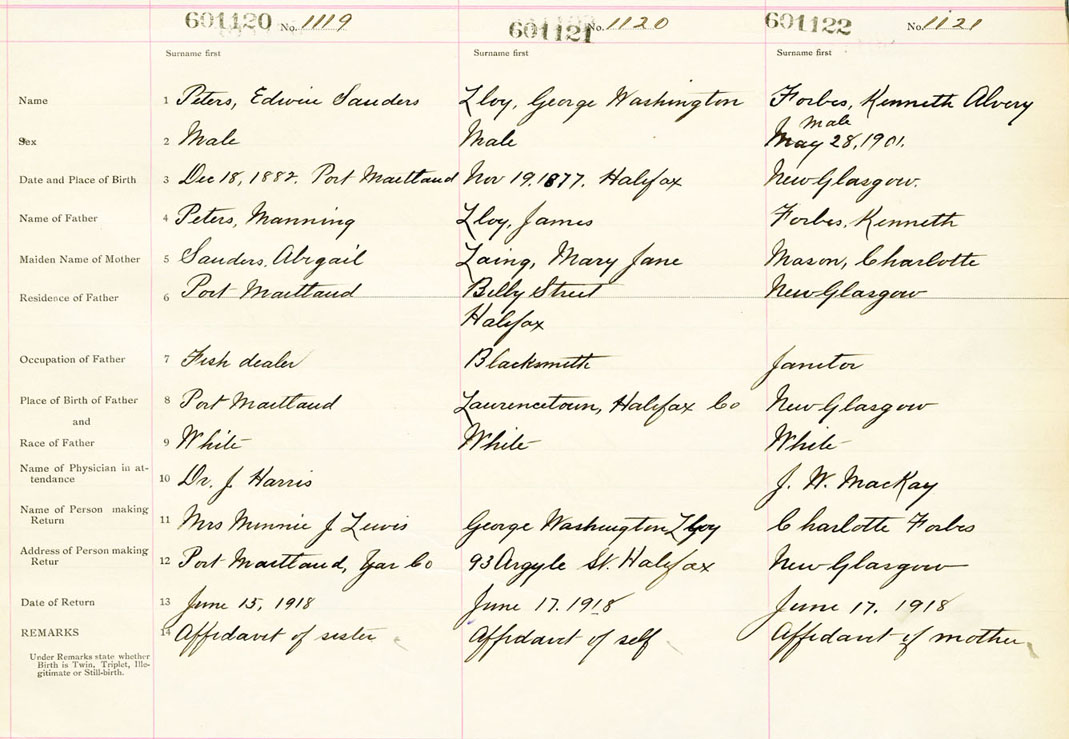 601120 No. 1119 601121 No. 1120 601122 No. 1121
Surname first Surname first Surname first
Name 1 Peters, Edwin Sanders Lloy, George Washington Forbes, Kenneth Alvery
Sex 2 Male Male Male
May 28, 1901.
Date and Place of Birth 3 Dec 18, 1882. Port Maitland Nov 19. 1877. Halifax New Glasgow.
Name of Father 4 Peters, Manning Lloy, James Forbes, Kenneth
Maiden Name of Mother 5 Sanders, Abigail Laing, Mary Jane Mason, Charlotte
Residence of Father 6 Port Maitland Billy Street New Glasgow
Halifax
Occupation of Father 7 Fish dealer Blacksmith Janitor
Place of Birth of Father 8 Port Maitland Laurencetown, Halifax Co New Glasgow
and
Race of Father 9 White White White
Name of Physician in at-
tendance 10 Dr. J. Harris J. W. MacKay
Name of Person making
Return 11 Mrs Minnie J Lewis George Washington Lloy Charlotte Forbes
Address of Person making
Retur 12 Port Maitland, Yar Co 93 Argyle St. Halifax New Glasgow
Date of Return 13 June 15, 1918 June 17. 1918 June 17. 1918
REMARKS 14 Affidavit of sister Affidavit of self Affidavit of mother
Under Remarks state whether
Birth is Twin, Triplet, Ille-
gitimate or Still-birth.